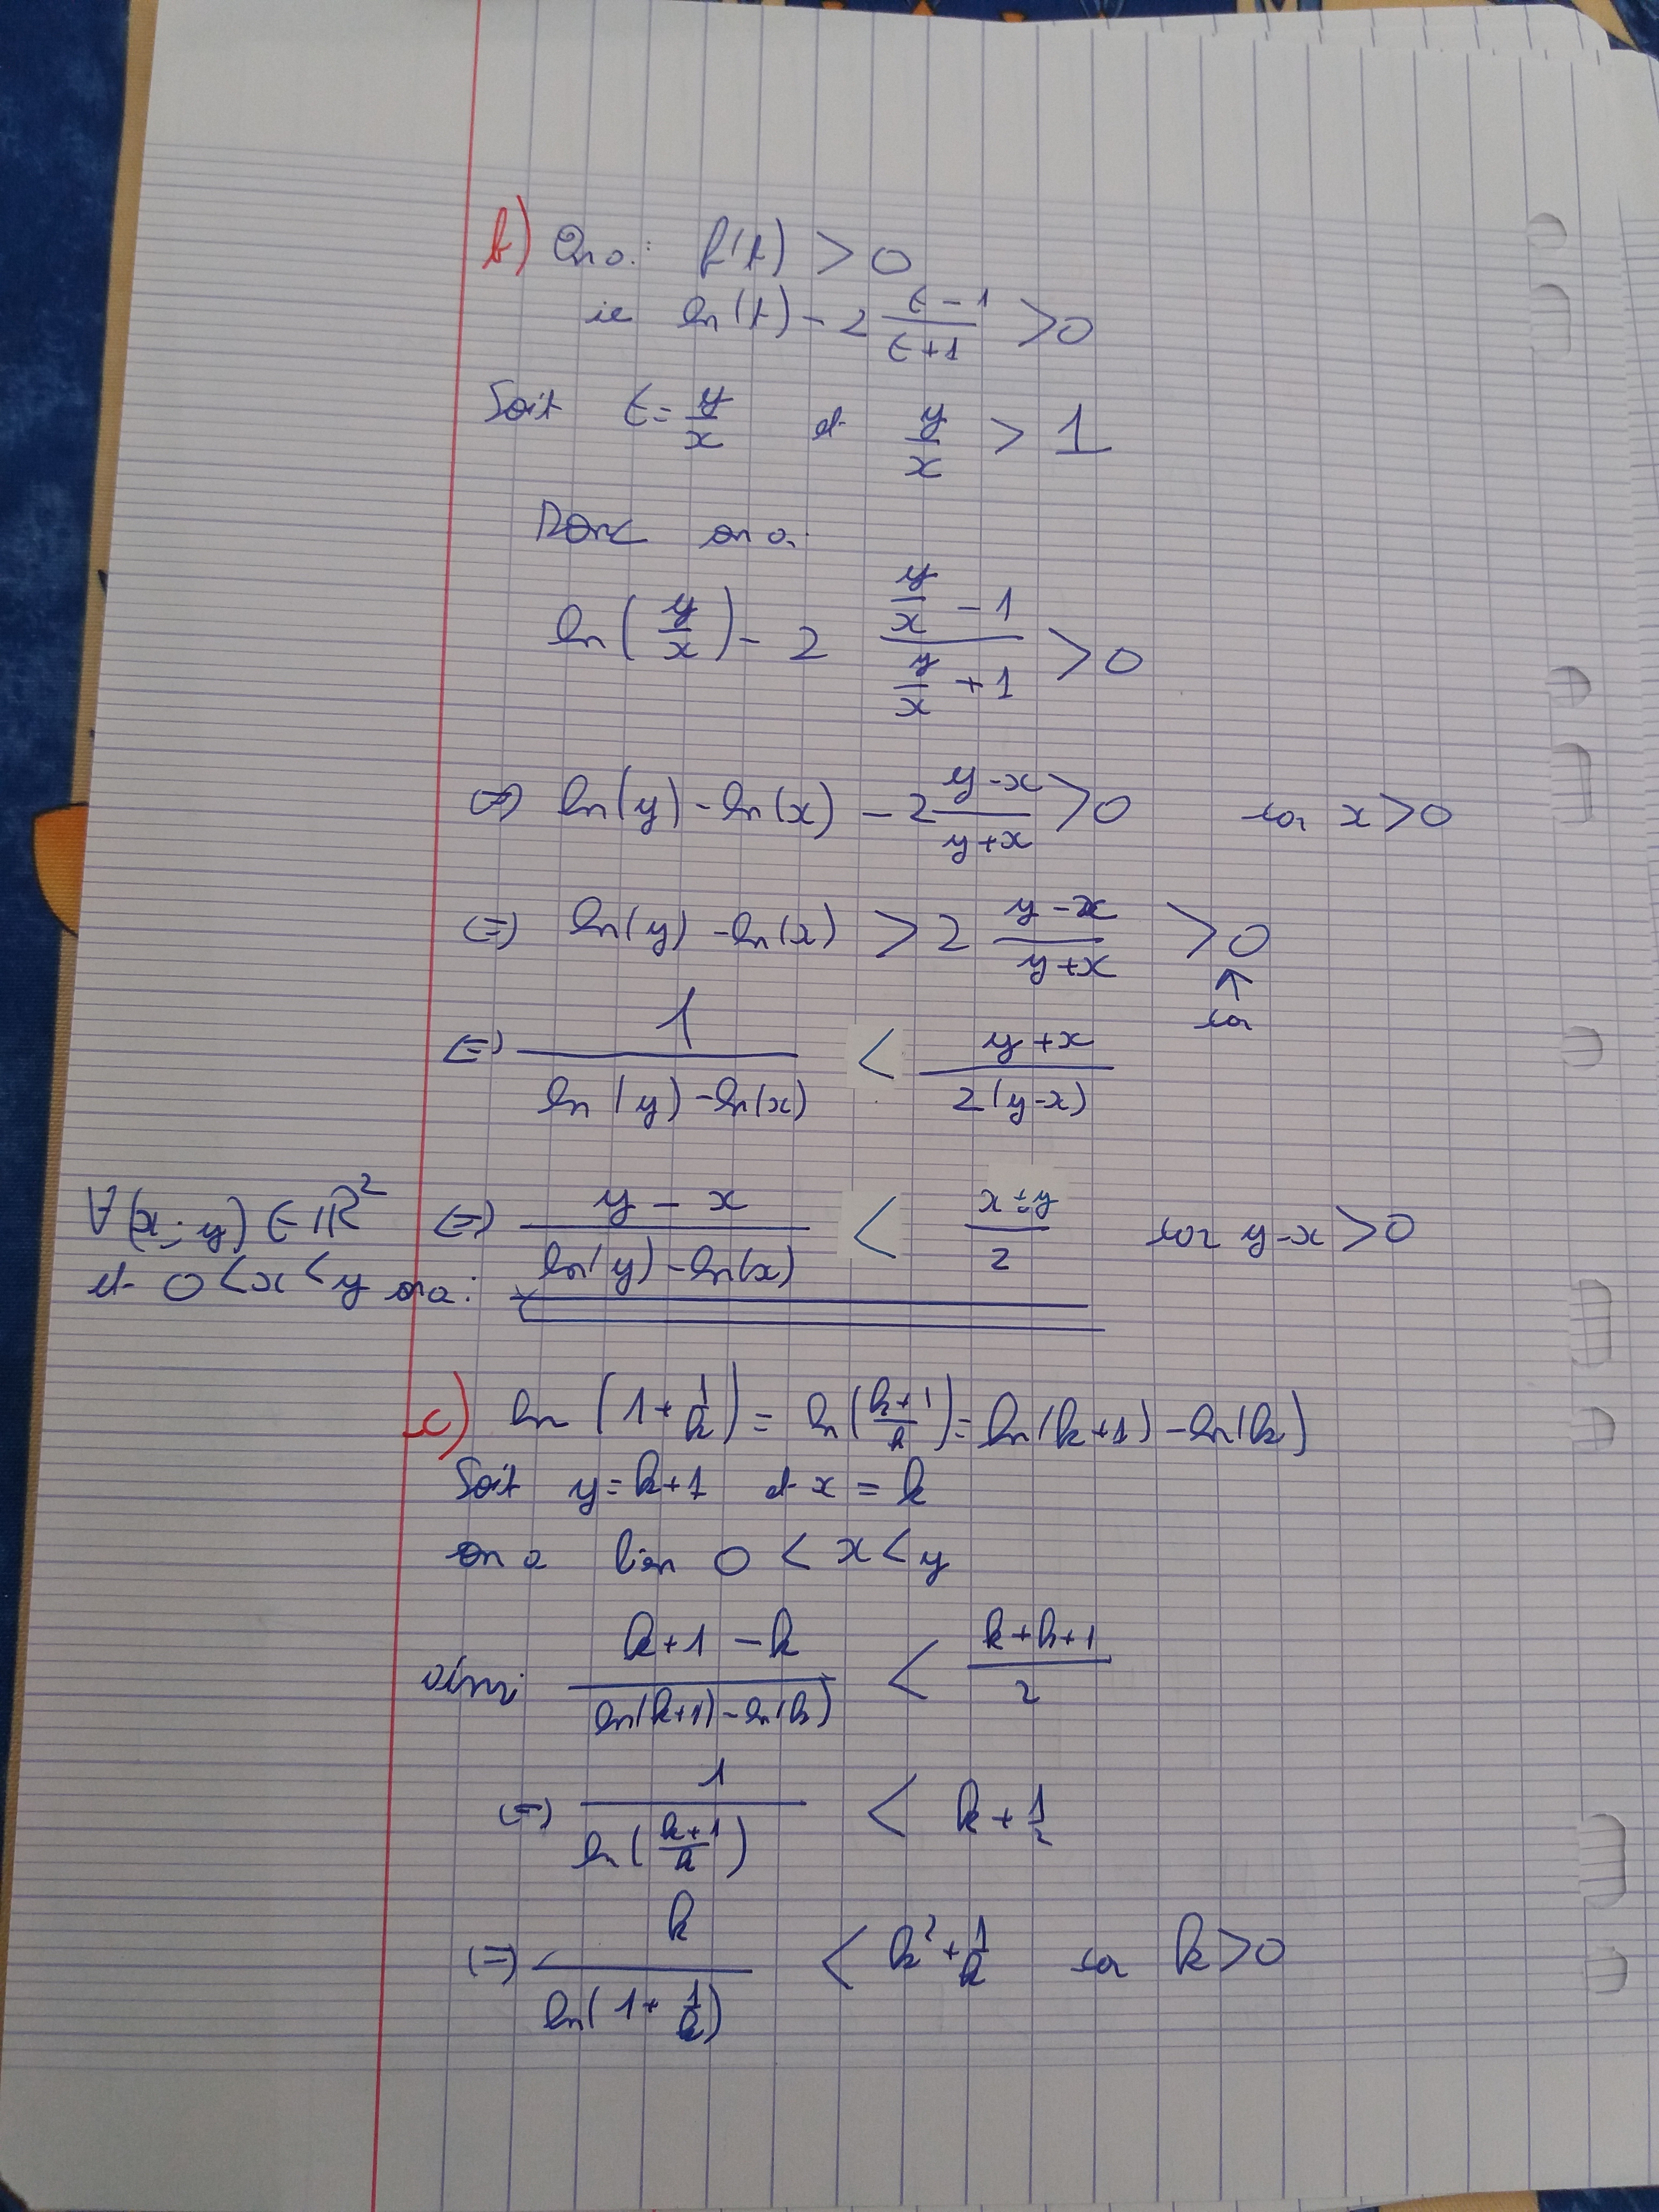 b) On a : f(t) > 0
ie ln(t) - 2 (t-1)/(t+1) > 0
Soit t = y/x et y/x > 1
Donc on a
ln(y/x) - 2 (y/x - 1)/(y/x + 1) > 0
⇔ ln(y) - ln(x) - 2 (y-x)/(y+x) > 0 car x > 0
⇔ ln(y) - ln(x) > 2 (y-x)/(y+x) > 0
↑
car
⇔ 1/(ln(y) - ln(x)) < (y+x)/(2(y-x))
∀(x;y) ∈ ℝ² ⇔ (y - x)/(ln(y) - ln(x)) < (x+y)/2 car y-x > 0
et 0 < x < y on a :
c) ln(1 + 1/k) = ln((k+1)/k) = ln(k+1) - ln(k)
Soit y = k+1 et x = k
on a bien 0 < x < y
ainsi (k+1 - k)/(ln(k+1) - ln(k)) < (k+k+1)/2
⇔ 1/ln((k+1)/k) < k + 1/2
⇔ k/ln(1 + 1/k) < k² + 1/k car k > 0